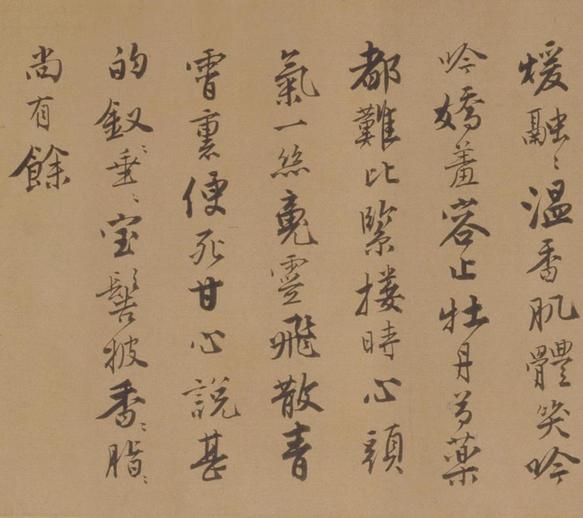 煖融〻温香肌體笑吟
吟嬌羞容止牡丹芍藥
都難比緊摟時心頭
氣一絲魂靈飛散青
霄裏便死甘心說甚
的釵垂〻宝髻披香〻脂〻
尚有餘